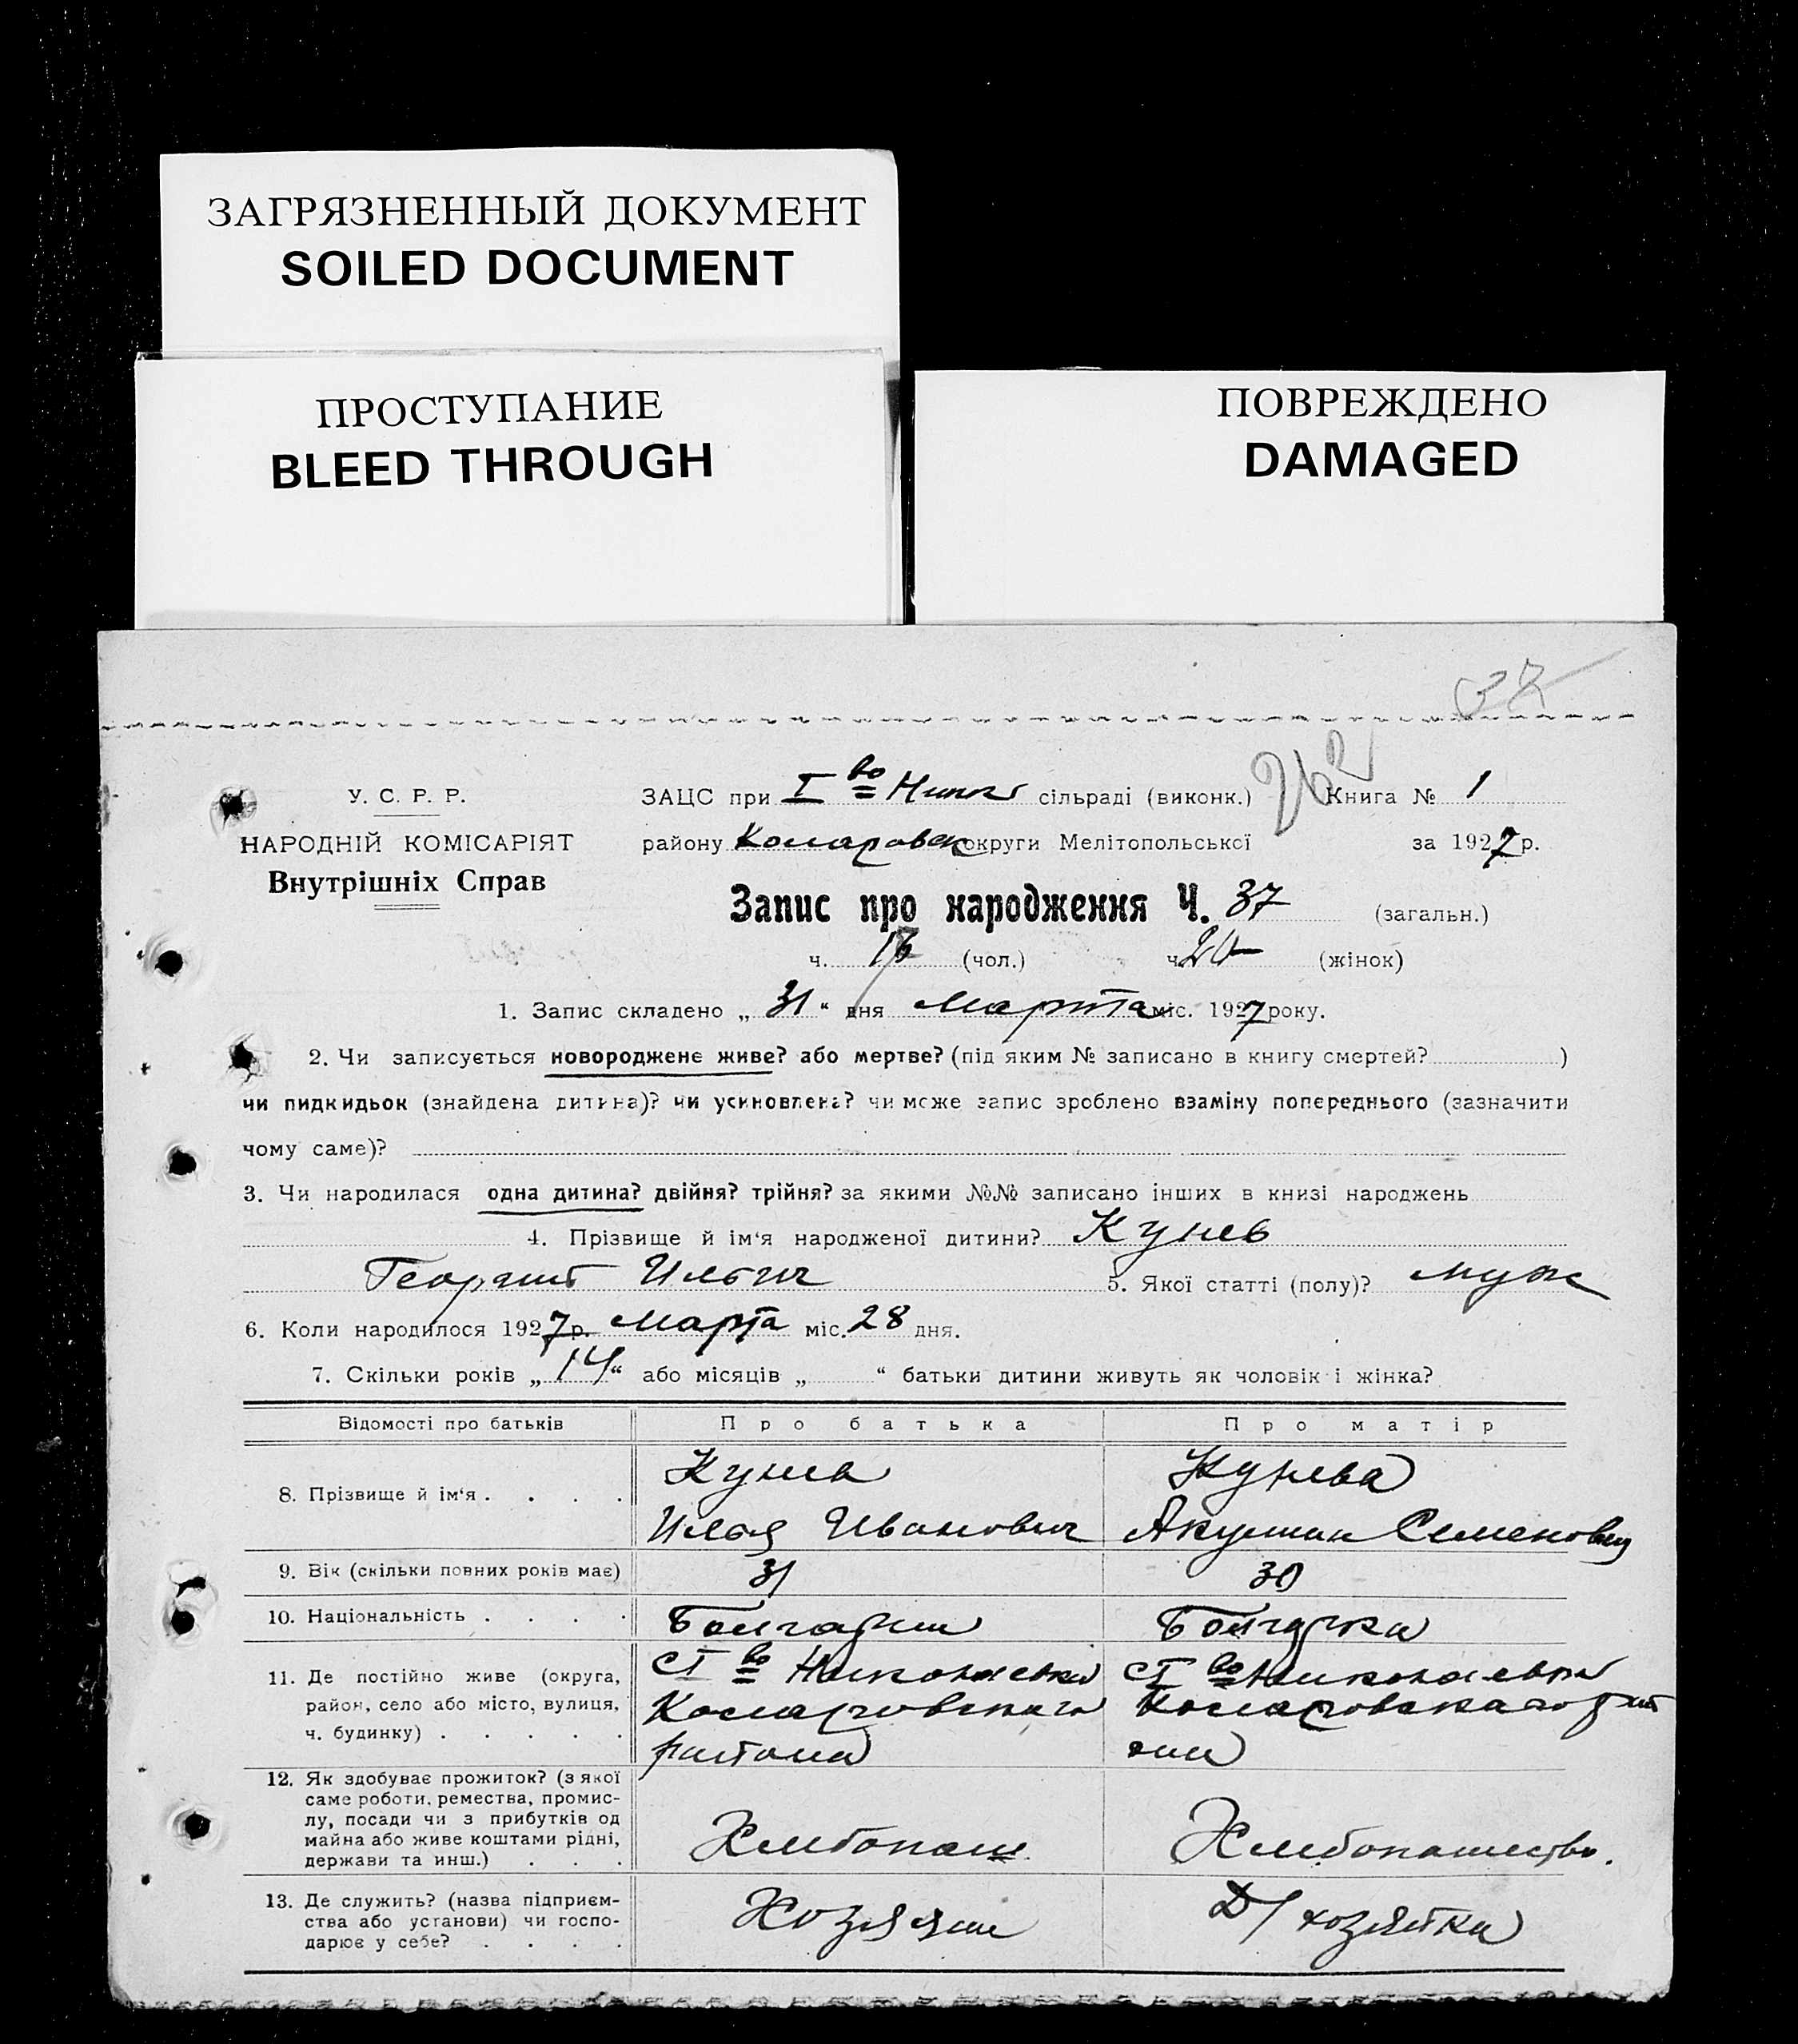 ЗАГРЯЗНЕННЫЙ ДОКУМЕНТ
SOILED DOCUMENT
ПРОСТУПАНИЕ
BLEED THROUGH
ПОВРЕЖДЕНО
DAMAGED
У. С. Р. Р.
НАРОДНІЙ КОМІСАРІЯТ
Внутрішніх Справ
ЗАЦС при I во сільраді (виконк.) Книга № 1
району Комаровск округи Мелітопольської за 1927 р.
Запис про народження Ч. 37 (загальн.)
ч. (чол.) ч. (жінок)
1. Запис складено „ 31 “ дня Марта міс. 1927 року.
2. Чи записується новороджене живе? або мертве? (під яким № записано в книгу смертей? )
чи пидкидьок (знайдена дитина)? чи усиновлена? чи може запис зроблено взаміну попереднього (зазначити
чому саме)?
3. Чи народилася одна дитина? двійня? трійня? за якими №№ записано інших в книзі народжень
4. Прізвище й ім‘я народженої дитини? Кунев
Георгий Ильич 5. Якої статті (полу)? муж
6. Коли народилося 1927 р. Марта міс. 28 дня.
7. Скільки років „ 14 “ або місяців „ “ батьки дитини живуть як чоловік і жінка?
Відомості про батьків Про батька Про матір
8. Прізвище й ім‘я . . . . Кунев Кунева
Илья Иванович Акулина Семеновна
9. Вік (скільки повних років має) 31 30
10. Національність . . . . Болгарин Болгарка
11. Де постійно живе (округа, с I во Николаевка с I во Николаевка
район, село або місто, вулиця, Комаровского Комаровскаго рай
ч. будинку) . . . . . района она
12. Як здобуває прожиток? (з якої
саме роботи, ремества, промис-
лу, посади чи з прибутків од
майна або живе коштами рідні, Хлебопаш Хлебопашество.
держави та инш.) . . .
13. Де служить? (назва підприєм-
ства або установи) чи госпо- Хозяин Д/хозяйка
дарює у себе? . . . .